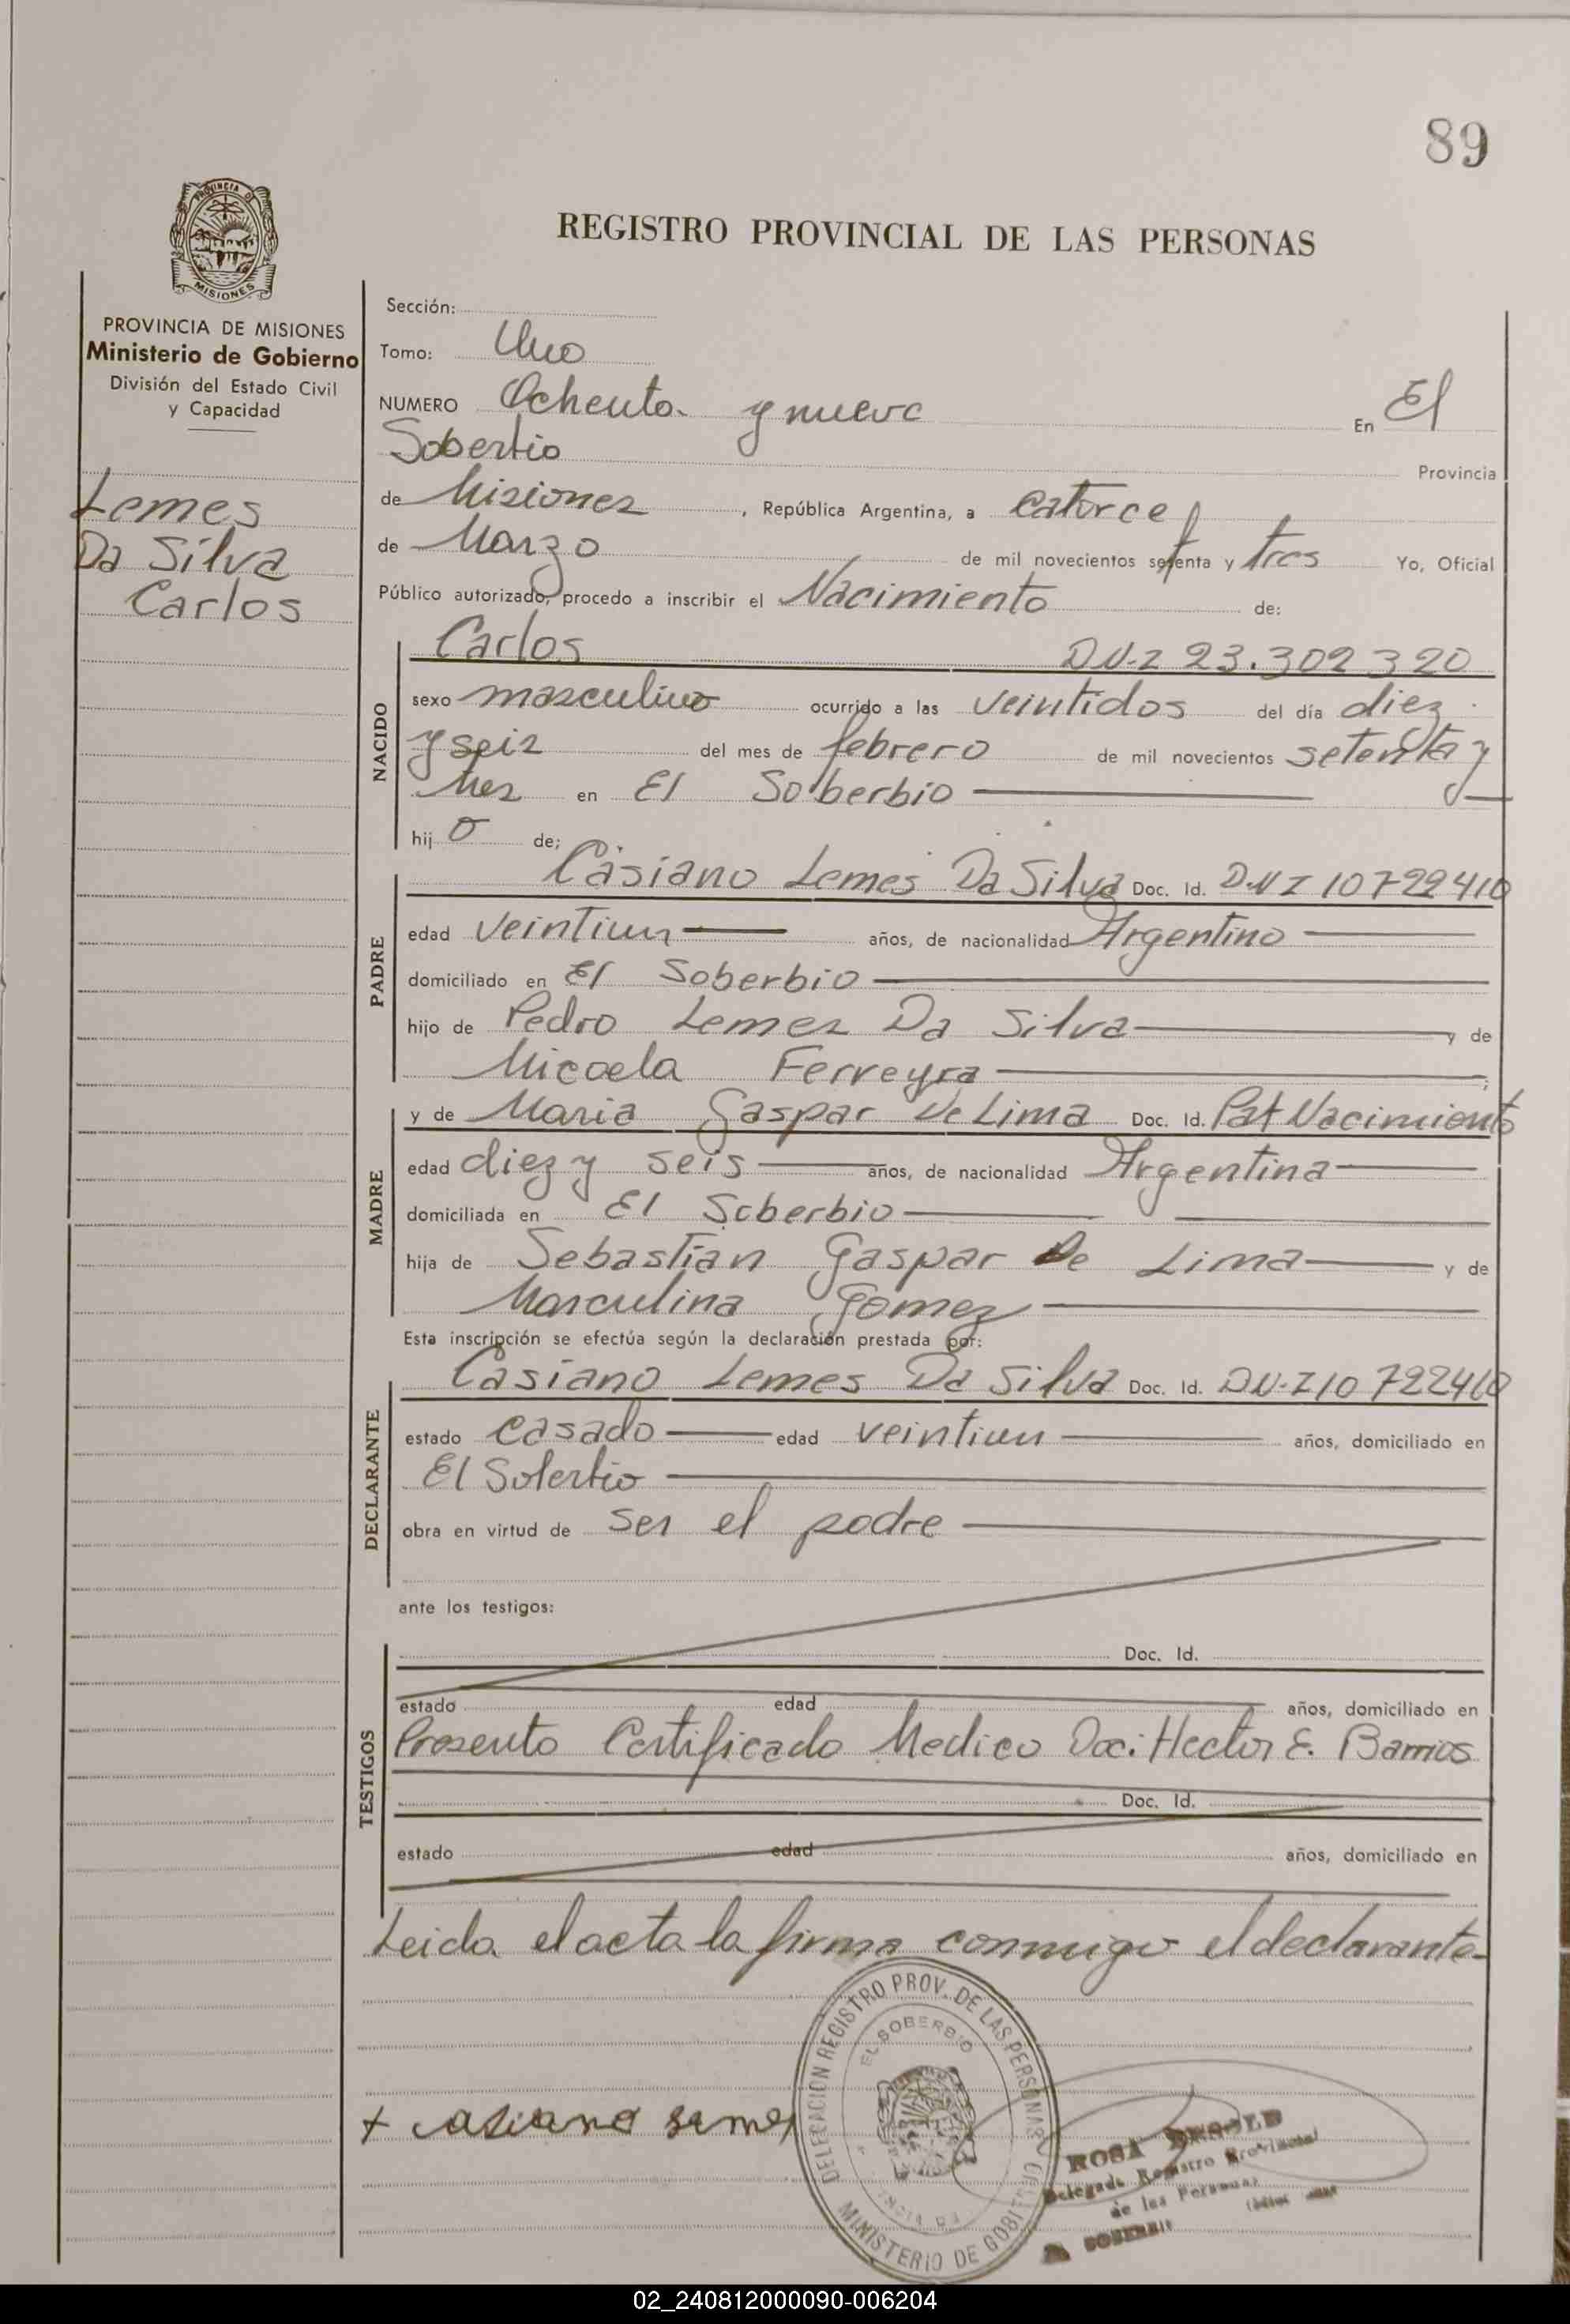 89
PROVINCIA DE
MISIONES
REGISTRO PROVINCIAL DE LAS PERSONAS
PROVINCIA DE MISIONES
Ministerio de Gobierno
División del Estado Civil
y Capacidad
Lemes
Da Silva
Carlos
Sección:
Tomo: Uno
NUMERO Ochenta y nueve En El
Soberbio Provincia
de Misiones, República Argentina, a catorce
de Marzo de mil novecientos setenta y tres Yo, Oficial
Público autorizado, procedo a inscribir el Nacimiento de:
NACIDO
Carlos D.N.I 23.302320
sexo masculino ocurrido a las veintidos del día diez
y seis del mes de febrero de mil novecientos setenta y
tres en El Soberbio
hijo de;
PADRE
Casiano Lemes Da Silva Doc. Id. D.N.I 10722410
edad veintiun años, de nacionalidad Argentino
domiciliado en El Soberbio
hijo de Pedro Lemes Da Silva y de
Micaela Ferreyra;
MADRE
y de Maria Gaspar De Lima Doc. Id. Pat Nacimiento
edad diez y seis años, de nacionalidad Argentina
domiciliada en El Soberbio
hija de Sebastian Gaspar De Lima y de
Masculina Gomez
Esta inscripción se efectúa según la declaración prestada por:
DECLARANTE
Casiano Lemes Da Silva Doc. Id. D.N.I 10722410
estado casado edad veintiun años, domiciliado en
El Soberbio
obra en virtud de ser el padre
ante los testigos:
TESTIGOS
Doc. Id.
estado edad años, domiciliado en
Presento Certificado Medico Doc: Hector E. Barrios
Doc. Id.
estado edad años, domiciliado en
Leida el acta la firma conmigo el declarante
DELEGACION REGISTRO PROV. DE LAS PERSONAS
EL SOBERBIO
MINISTERIO DE GOBI
+ casiano lemes
ROSA
Delegada Registro Provincial
de las Personas
EL SOBERBIO
02_240812000090-006204